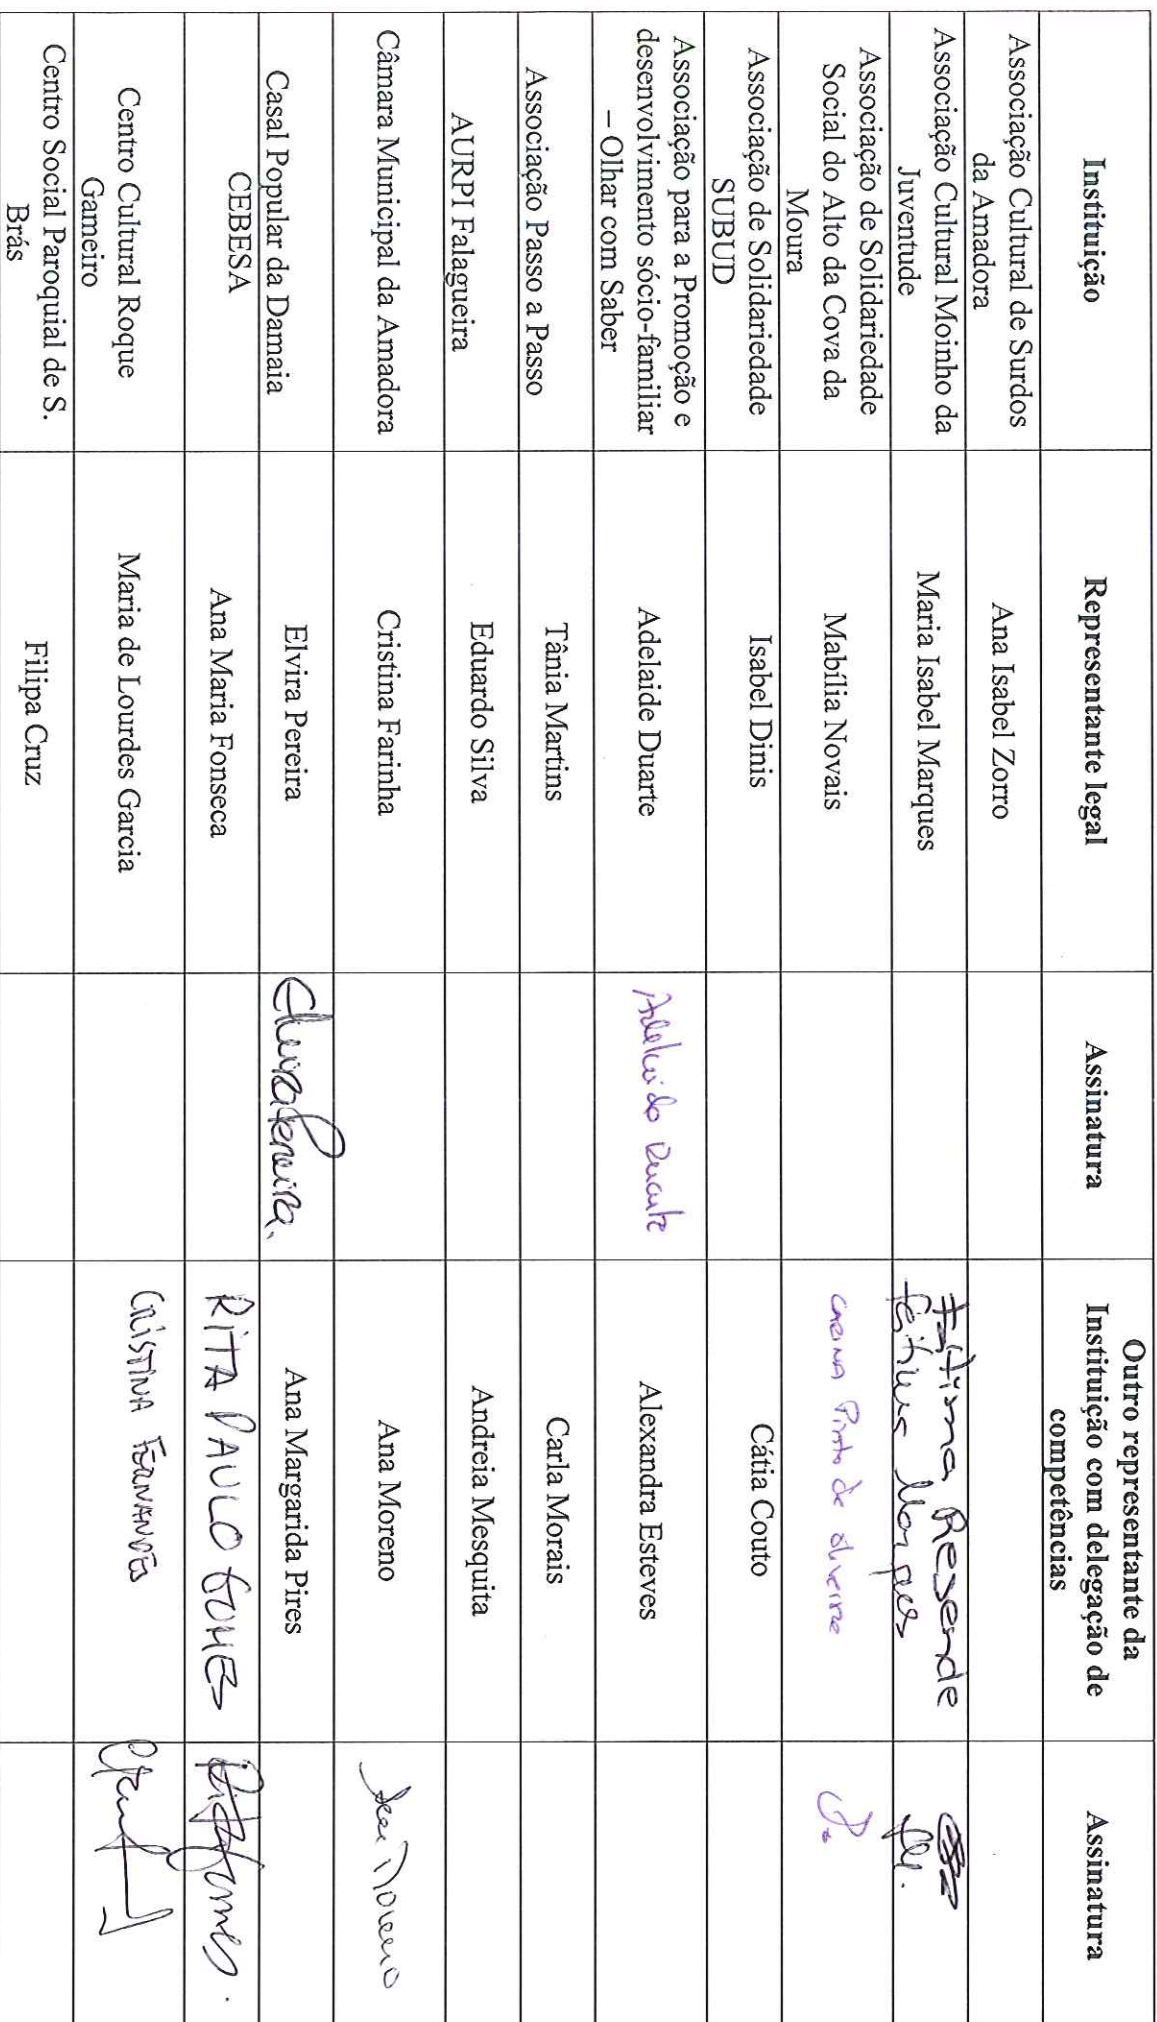 Instituição
Representante legal
Assinatura
Outro representante da
Instituição com delegação de
competências
Assinatura
Associação Cultural de Surdos
da Amadora
Ana Isabel Zorro
Associação Cultural Moinho da
Juventude
Maria Isabel Marques
Fátima Resende
Marques
Associação de Solidariedade
Social do Alto da Cova da
Moura
Mabília Novais
Carina Pinto de Oliveira
Associação de Solidariedade
SUBUD
Isabel Dinis
Cátia Couto
Associação para a Promoção e
desenvolvimento sócio-familiar
– Olhar com Saber
Adelaide Duarte
Adelaide Duarte
Alexandra Esteves
Associação Passo a Passo
Tânia Martins
Carla Morais
AURPI Falagueira
Eduardo Silva
Andreia Mesquita
Câmara Municipal da Amadora
Cristina Farinha
Ana Moreno
Ana Moreno
Casal Popular da Damaia
Elvira Pereira
Elvira Pereira.
Ana Margarida Pires
CEBESA
Ana Maria Fonseca
RITA PAULO GOMES
Rita Gomes.
Centro Cultural Roque
Gameiro
Maria de Lourdes Garcia
CRISTINA FERNANDES
Centro Social Paroquial de S.
Brás
Filipa Cruz